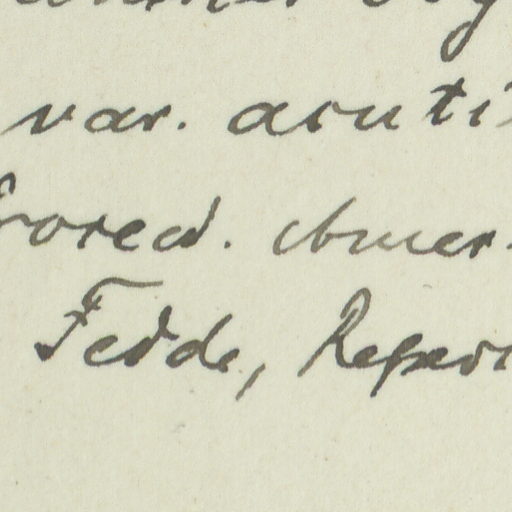 var. acuti
Proced. Amer.
Fedde, Repert